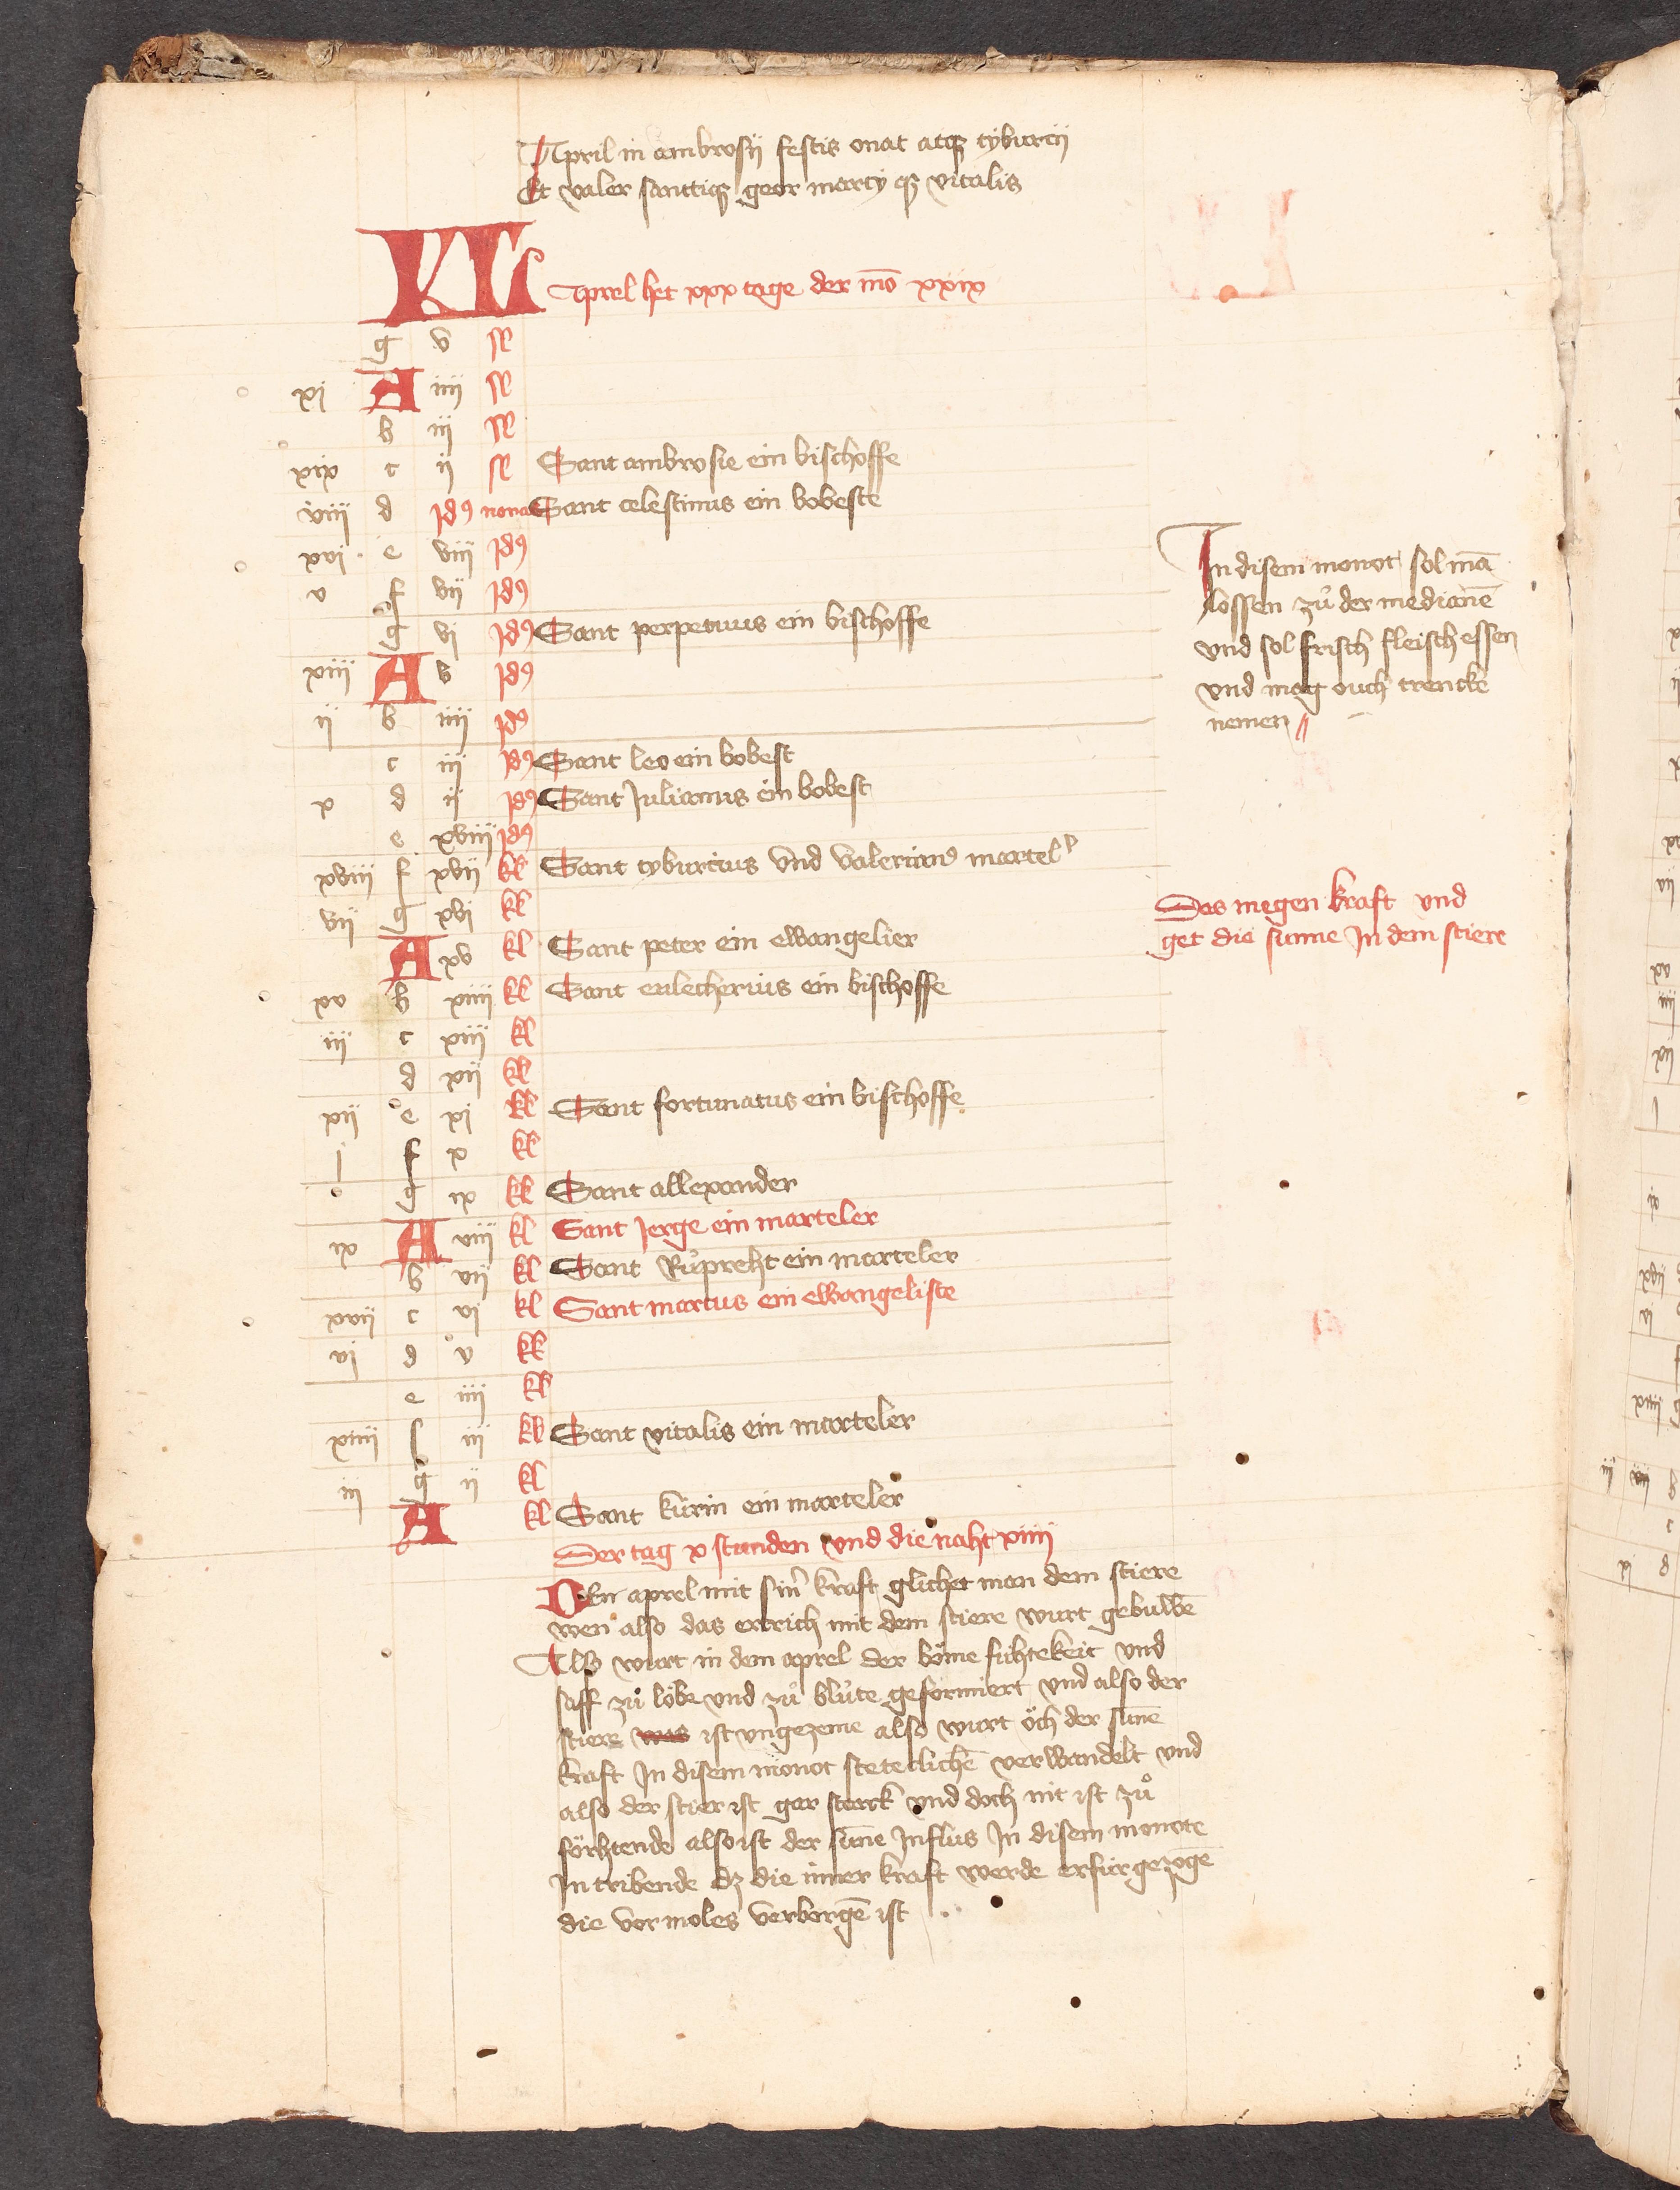 April in ambrosij festis onat atqꝫ tyburcij
Et valer sanctiqꝫ geor marcy qꝫ vitalis
KL Aprel het xxx tage der mō xxix
g v
xj A iiij
b iij
xix c ij Sant ambrosie ein bischoffe
viij d jdꝰ nona Sant celestinus ein bobeste
xvj e viij jdꝰ
v f vij jdꝰ
g vj jdꝰ Sant perpetuus ein bischoffe
xiij A v jdꝰ
ij b iiij jdꝰ
c iij jdꝰ Sant leo ein bobest
x d ij jdꝰ Sant Julianus ein bobest
e xviij jdꝰ
xviij f xvij kl Sant tyburcius vnd valerianꝰ martel
vij g xvj kl
A xv kl Sant peter ein ewangelier
xv b xiiij kl Sant eulecherius ein bischoffe
iiij c xiij kl
d xij kl
xij e xj kl Sant fortunatus ein bischoffe
j f x kl
g ix kl Sant allexander
ix A viij kl Sant Jerge ein marteler
b vij kl Sant Růpreht ein marteler
xvij c vj kl Sant marcus ein ewangeliste
vj d v kl
e iiij kl
xiiij f iij kl Sant vitalis ein marteler
iij g ij kl
A kl Sant kürin ein marteler
Der tag x stunden vnd die naht xiiij
Den aprel mit sinr kraft glichet man dem stiere
wen also das ertrich mit dem stiere wurt gebuwē
Also wurt in dem aprel der böme fühtekeit vnd
saff zů löbe vnd zů blůte geformiert vnd also der
stiere was ist vngezeme also wurt öch der sunē
kraft In disem monot stetteclichē verwandelt vnd
also der stier ist gar sterck vnd doch nit ist zů
förhtende also ist der sunē Influs In disem monote
In tribende dz die inner kraft werde erfür gezogē
die vor moles verborgē ist
In disem monot sol mā
lossen zů der medianē
vnd sol frisch fleisch essen
vnd mag ouch trencke
nemen
Das megen kraft vnd
get die sunne In dem stiere